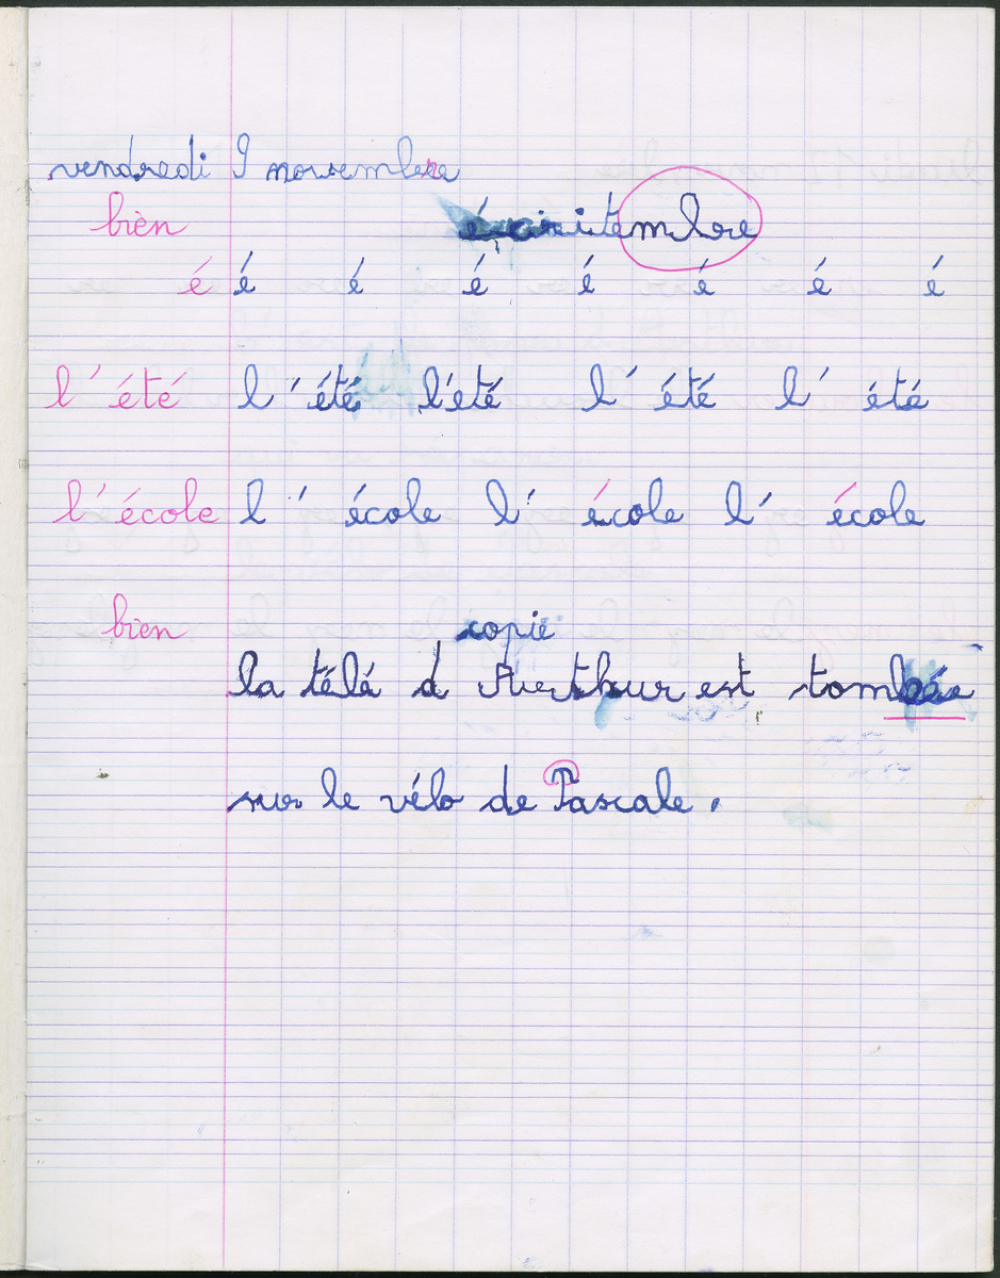 vendredi 9 novembre
bien écritembre
é é é é é é é é
l'été l'été l'été l'été l'été
l'école l'école l'école l'école
bien copie
la télé d Arthur est tombée
sur le vélo de Pascale.